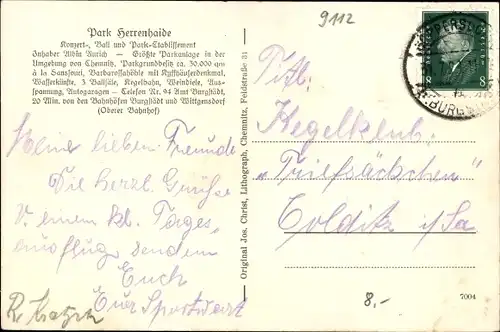 Park Herrenhaide
Konzert-, Ball und Park-Etablissement
Inhaber Albin Aurich — Größte Parkanlage in der
Umgebung von Chemnitz, Parkgrundbesitz ca. 30.000 qm
à la Sanssouci, Barbarossahöhle mit Kyffhäuserdenkmal,
Wasserkünste, 3 Ballsäle, Kegelbahn, Weindiele, Aus-
spannung, Autogaragen — Telefon Nr. 94 Amt Burgstädt,
20 Min. von den Bahnhöfen Burgstädt und Wittgensdorf
(Oberer Bahnhof)
Meine lieben Freunde
Die herzl. Grüße
v. einem kl. Tages-
ausflug sendem
Euch
Euer Sportwart
Original Jos. Christ, Lithograph, Chemnitz, Feldstraße 31
9112
8 8
BURGST
Titl.
Kegelklub
„Triefsäckchen"
Colditz i/Sa
8.-
7004